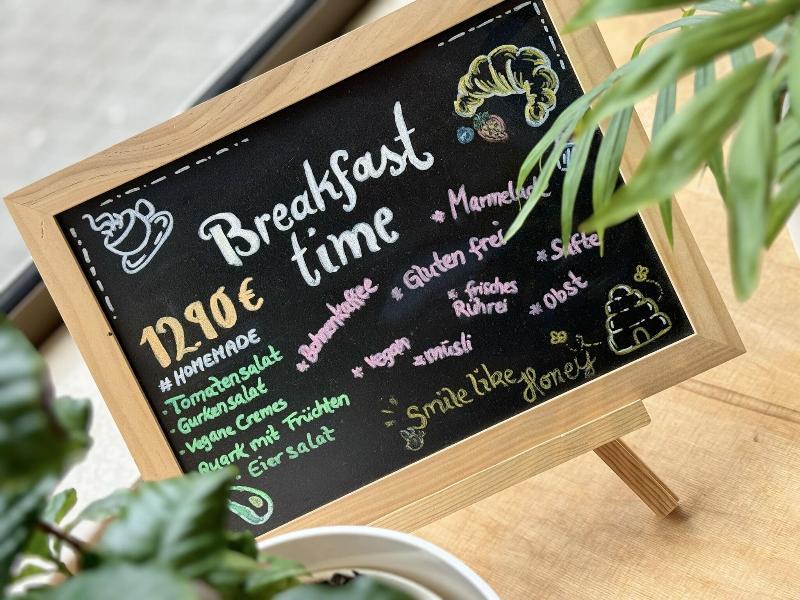 Breakfast
time
12,90 €
#HOMEMADE
· Tomatensalat
· Gurkensalat
· Vegane Cremes
Quark mit Früchten
· Eiersalat
* Marmelade
* Gluten frei
* Säfte
* Bohnenkaffee
* frisches
Rührei
* Obst
* vegan
* müsli
Smile like Honey